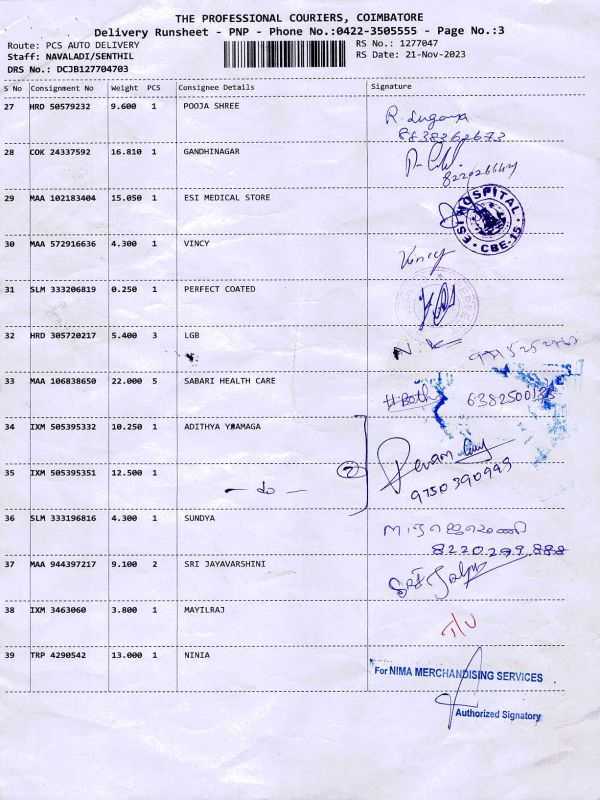 THE PROFESSIONAL COURIERS, COIMBATORE
Delivery Runsheet - PNP - Phone No.:0422-3505555 - Page No.:3
Route: PCS AUTO DELIVERY RS No.: 1277047
Staff: NAVALADI/SENTHIL RS Date: 21-Nov-2023
DRS No.: DCJB127704703
S No Consignment No Weight PCS Consignee Details Signature
27 HRD 50579232 9.600 1 POOJA SHREE
28 COK 24337592 16.810 1 GANDHINAGAR
29 MAA 102183404 15.050 1 ESI MEDICAL STORE
ESI HOSPITAL CBE-15
30 MAA 572916636 4.300 1 VINCY
Vincy
31 SLM 333206819 0.250 1 PERFECT COATED
32 HRD 305720217 5.400 3 LGB
33 MAA 106838650 22.000 5 SABARI HEALTH CARE
34 IXM 505395332 10.250 1 ADITHYA YRAMAGA
35 IXM 505395351 12.500 1 - do - 2
9750390993
36 SLM 333196816 4.300 1 SUNDYA
8220299888
37 MAA 944397217 9.100 2 SRI JAYAVARSHINI
38 IXM 3463060 3.800 1 MAYILRAJ
39 TRP 4290542 13.000 1 NINIA
For NIMA MERCHANDISING SERVICES
Authorized Signatory